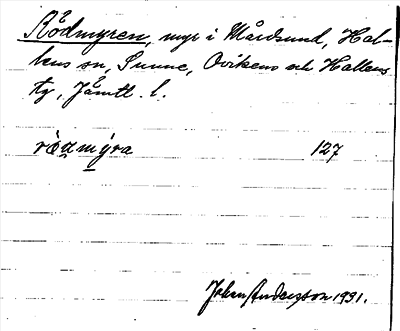 Rödmyren, myr i Mårdsund, Hal-
lens sn, Sunne, Ovikens och Hallens
tg, Jämtl. l.
röamýra 127
Johan Andersson 1931.